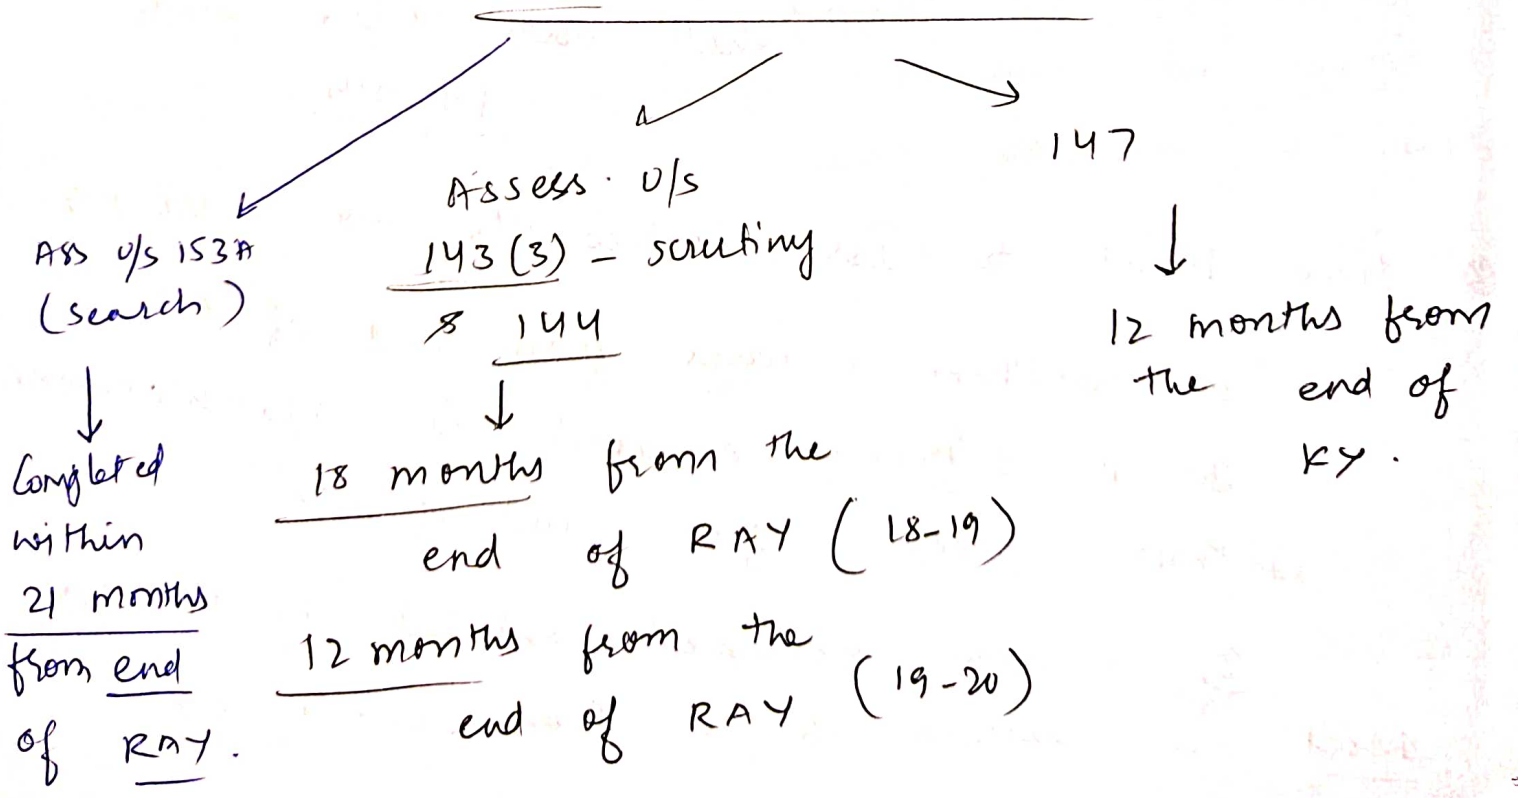 Ass u/s 153A
(search)
Completed
within
21 months
from end
of RAY.
Assess. U/s
143 (3) - scrutiny
& 144
18 months from the
end of RAY (18-19)
12 months from the
end of RAY (19-20)
147
12 months from
the end of
KY.